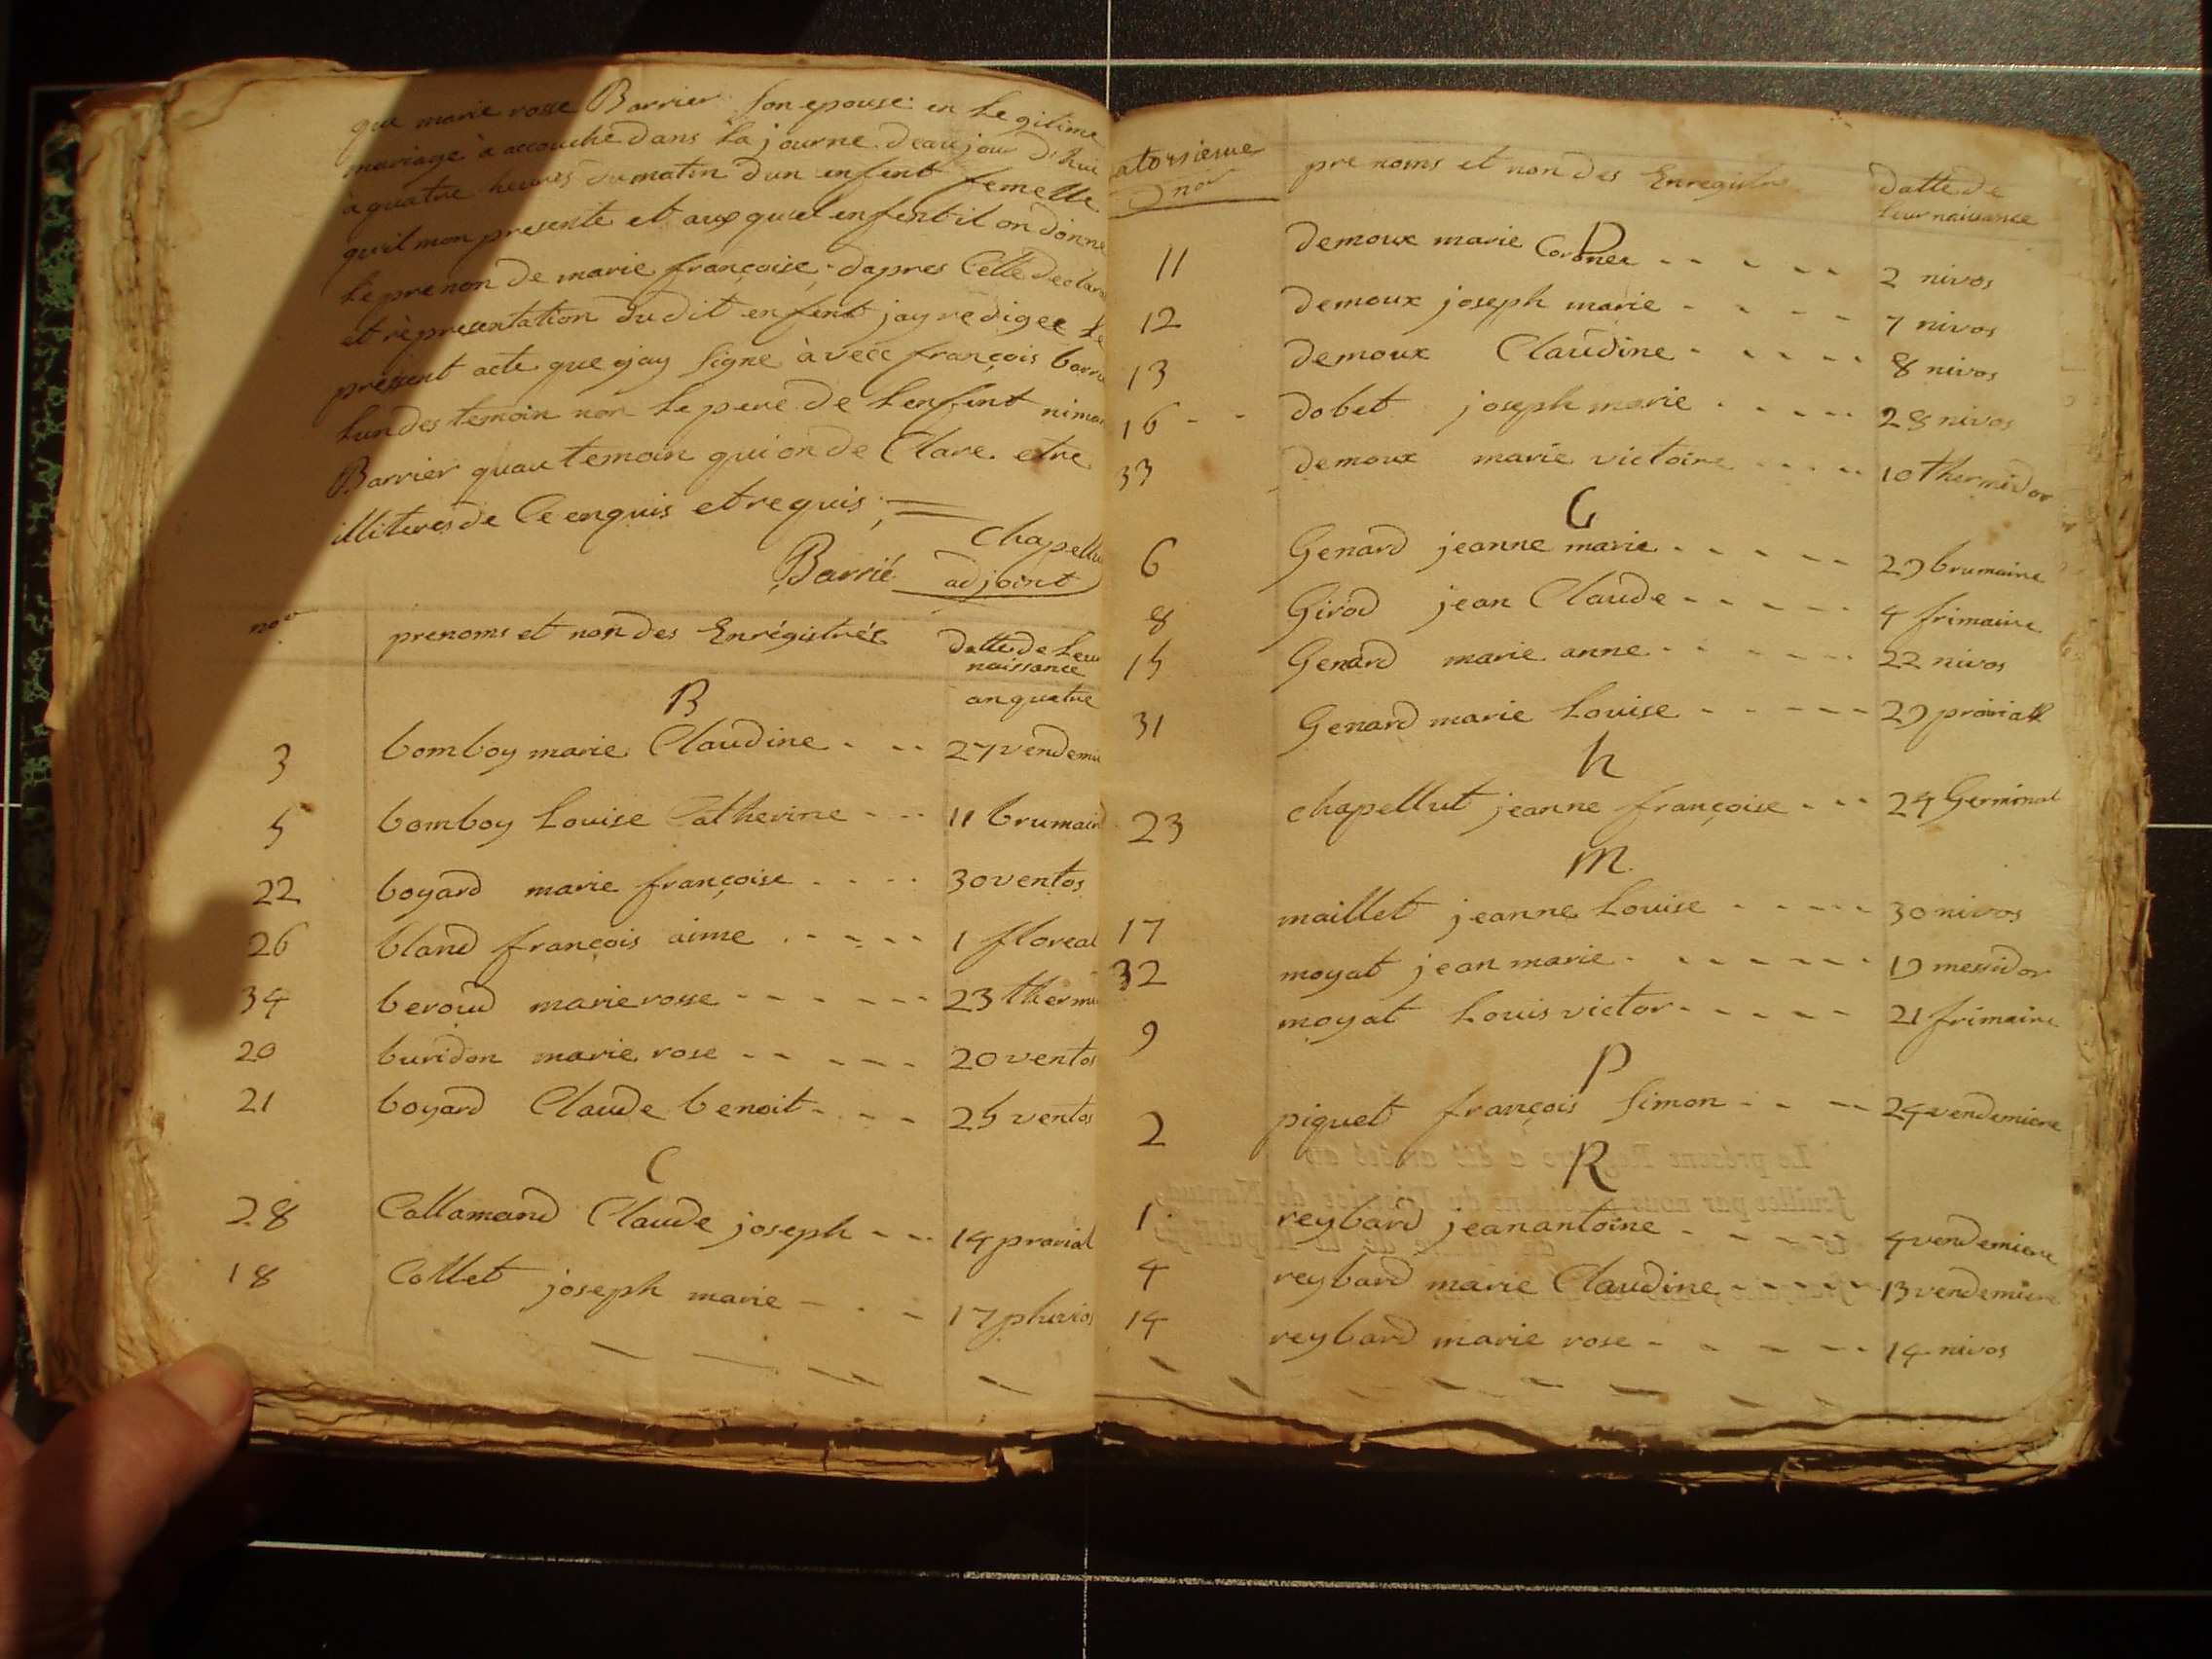 que marie rosse Barrier son epouse en Legitime
mariage à accouché dans La journe deaujour d'hui
à quatre heures du matin dun enfent femelle
quil mon presente et aux quel enfent il on donne
Le prenon de marie françoise; dapres Cette declara
et représentation du dit enfent jay redigee Le
present acte que jay signe àvecc françois barri
Lun des temoin non Le pere de Lenfent ni
Barrier quau temoin qui on de Clare etre
illiteres de Ce enquis et requis;
Chapellu
Barrié adjoint
nos prenoms et non des Enrégistrés datte de Leur
naissance
an quatre
B
3 bomboy marie Claudine 27 vendemi
5 bomboy Louise Catherine 11 brumair
22 boyard marie françoise 30 ventos
26 bland françois aime 1 floreal
34 beroud marie rosse 23 thermi
20 buridon marie rose 20 ventos
21 boyard Claude benoit 25 ventos
C
28 Callamand Claude joseph 14 pravial
18 Collet joseph marie 17 pluvios
atorsieme
nos pre noms et non des Enregistr datte de
leur naissance
D
11 demoux marie 2 nivos
12 demoux joseph marie 7 nivos
13 demoux Claudine 8 nivos
16 dobet joseph marie 28 nivos
33 demoux marie victoire 10 thermidor
G
6 Genard jeanne marie 29 brumaire
8 Girod jean Claude 4 frimaire
15 Genard marie anne 22 nivos
31 Genard marie Louise 29 praviall
h
23 chapellut jeanne françoise 24 Germinal
m
17 maillet jeanne Louise 30 nivos
32 moyat jean marie 19 messidor
9 moyat Louis victor 21 frimaire
P
2 piquet françois Simon 24 vendemiere
R
1 reybard jean antoine 4 vendemiere
4 reybard marie Claudine 13 vendemiere
14 reybard marie rose 14 nivos